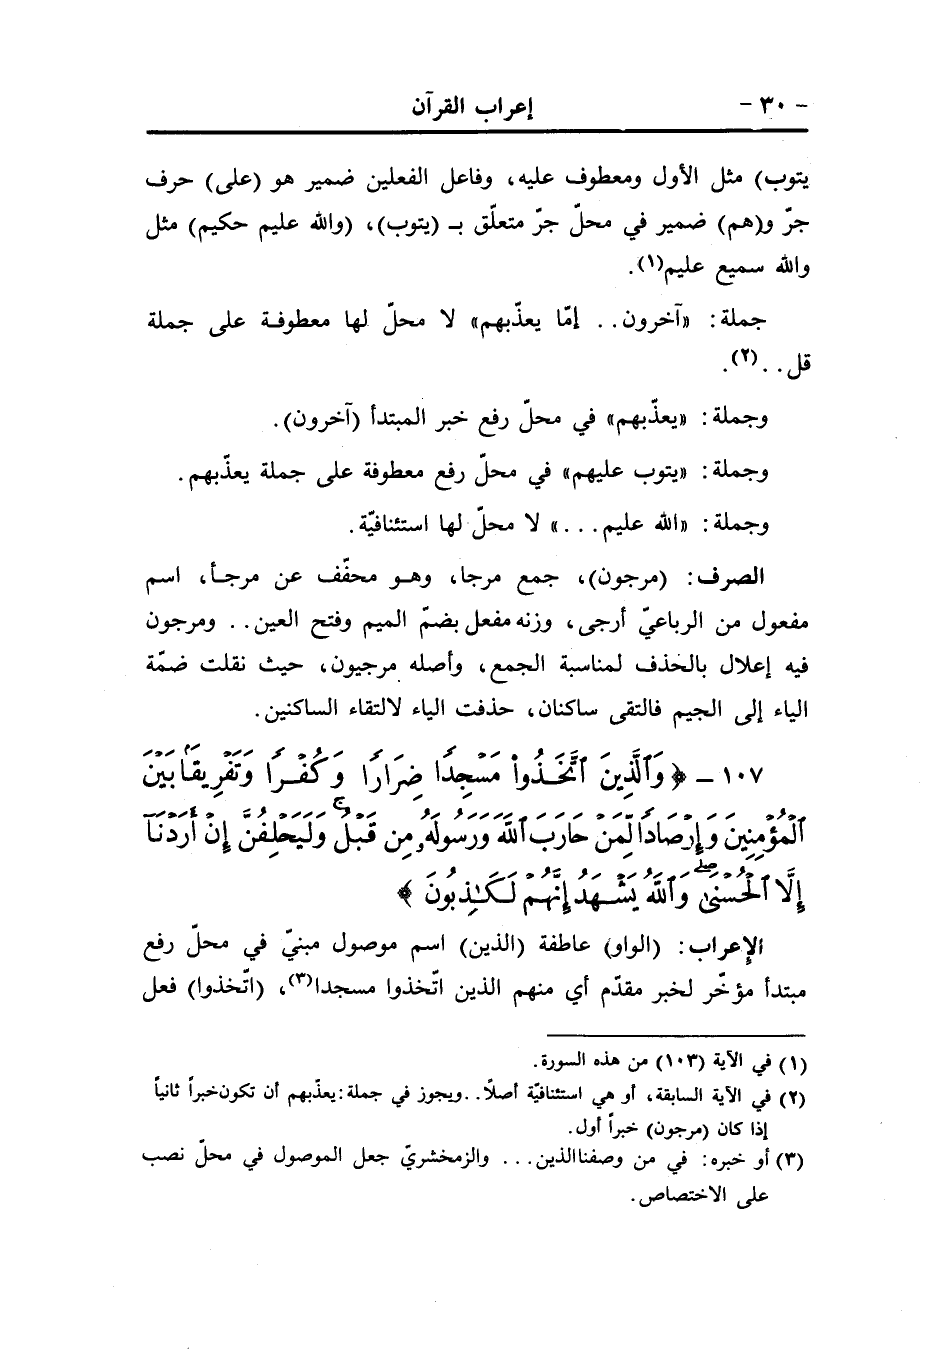 - ٣٠ - إعراب القرآن
يتوب) مثل الأول ومعطوف عليه، وفاعل الفعلين ضمير هو (على) حرف
جرّ و(هم) ضمير في محلّ جرّ متعلّق بـ (يتوب)، (والله عليم حكيم) مثل
والله سميع عليم(١).
جملة: «آخرون.. إمّا يعذّبهم» لا محلّ لها معطوفة على جملة
قل..(٢).
وجملة: «يعذّبهم» في محلّ رفع خبر المبتدأ (آخرون).
وجملة: «يتوب عليهم» في محلّ رفع معطوفة على جملة يعذّبهم.
وجملة: «الله عليم...» لا محلّ لها استئنافيّة.
الصرف: (مرجون)، جمع مرجا، وهو محفّف عن مرجأ، اسم
مفعول من الرباعيّ أرجى، وزنه مفعل بضمّ الميم وفتح العين.. ومرجون
فيه إعلال بالحذف لمناسبة الجمع، وأصله مرجيون، حيث نقلت ضمّة
الياء إلى الجيم فالتقى ساكنان، حذفت الياء لالتقاء الساكنين.
١٠٧ - ﴿ وَٱلَّذِينَ ٱتَّخَذُواْ مَسْجِدًا ضِرَارًا وَكُفْرًا وَتَفْرِيقًا بَيْنَ
ٱلْمُؤْمِنِينَ وَإِرْصَادًا لِّمَنْ حَارَبَ ٱللَّهَ وَرَسُولَهُۥ مِن قَبْلُ ۚ وَلَيَحْلِفُنَّ إِنْ أَرَدْنَآ
إِلَّا ٱلْحُسْنَىٰ ۖ وَٱللَّهُ يَشْهَدُ إِنَّهُمْ لَكَـٰذِبُونَ ﴾
الإعراب: (الواو) عاطفة (الذين) اسم موصول مبنيّ في محلّ رفع
مبتدأ مؤخّر لخبر مقدّم أي منهم الذين اتّخذوا مسجدا(٣)، (اتّخذوا) فعل
(١) في الآية (١٠٣) من هذه السورة.
(٢) في الآية السابقة، أو هي استئنافيّة أصلًا.. ويجوز في جملة: يعذّبهم أن تكون خبراً ثانياً
إذا كان (مرجون) خبراً أول.
(٣) أو خبره: في من وصفنا الذين... والزمخشريّ جعل الموصول في محلّ نصب
على الاختصاص.